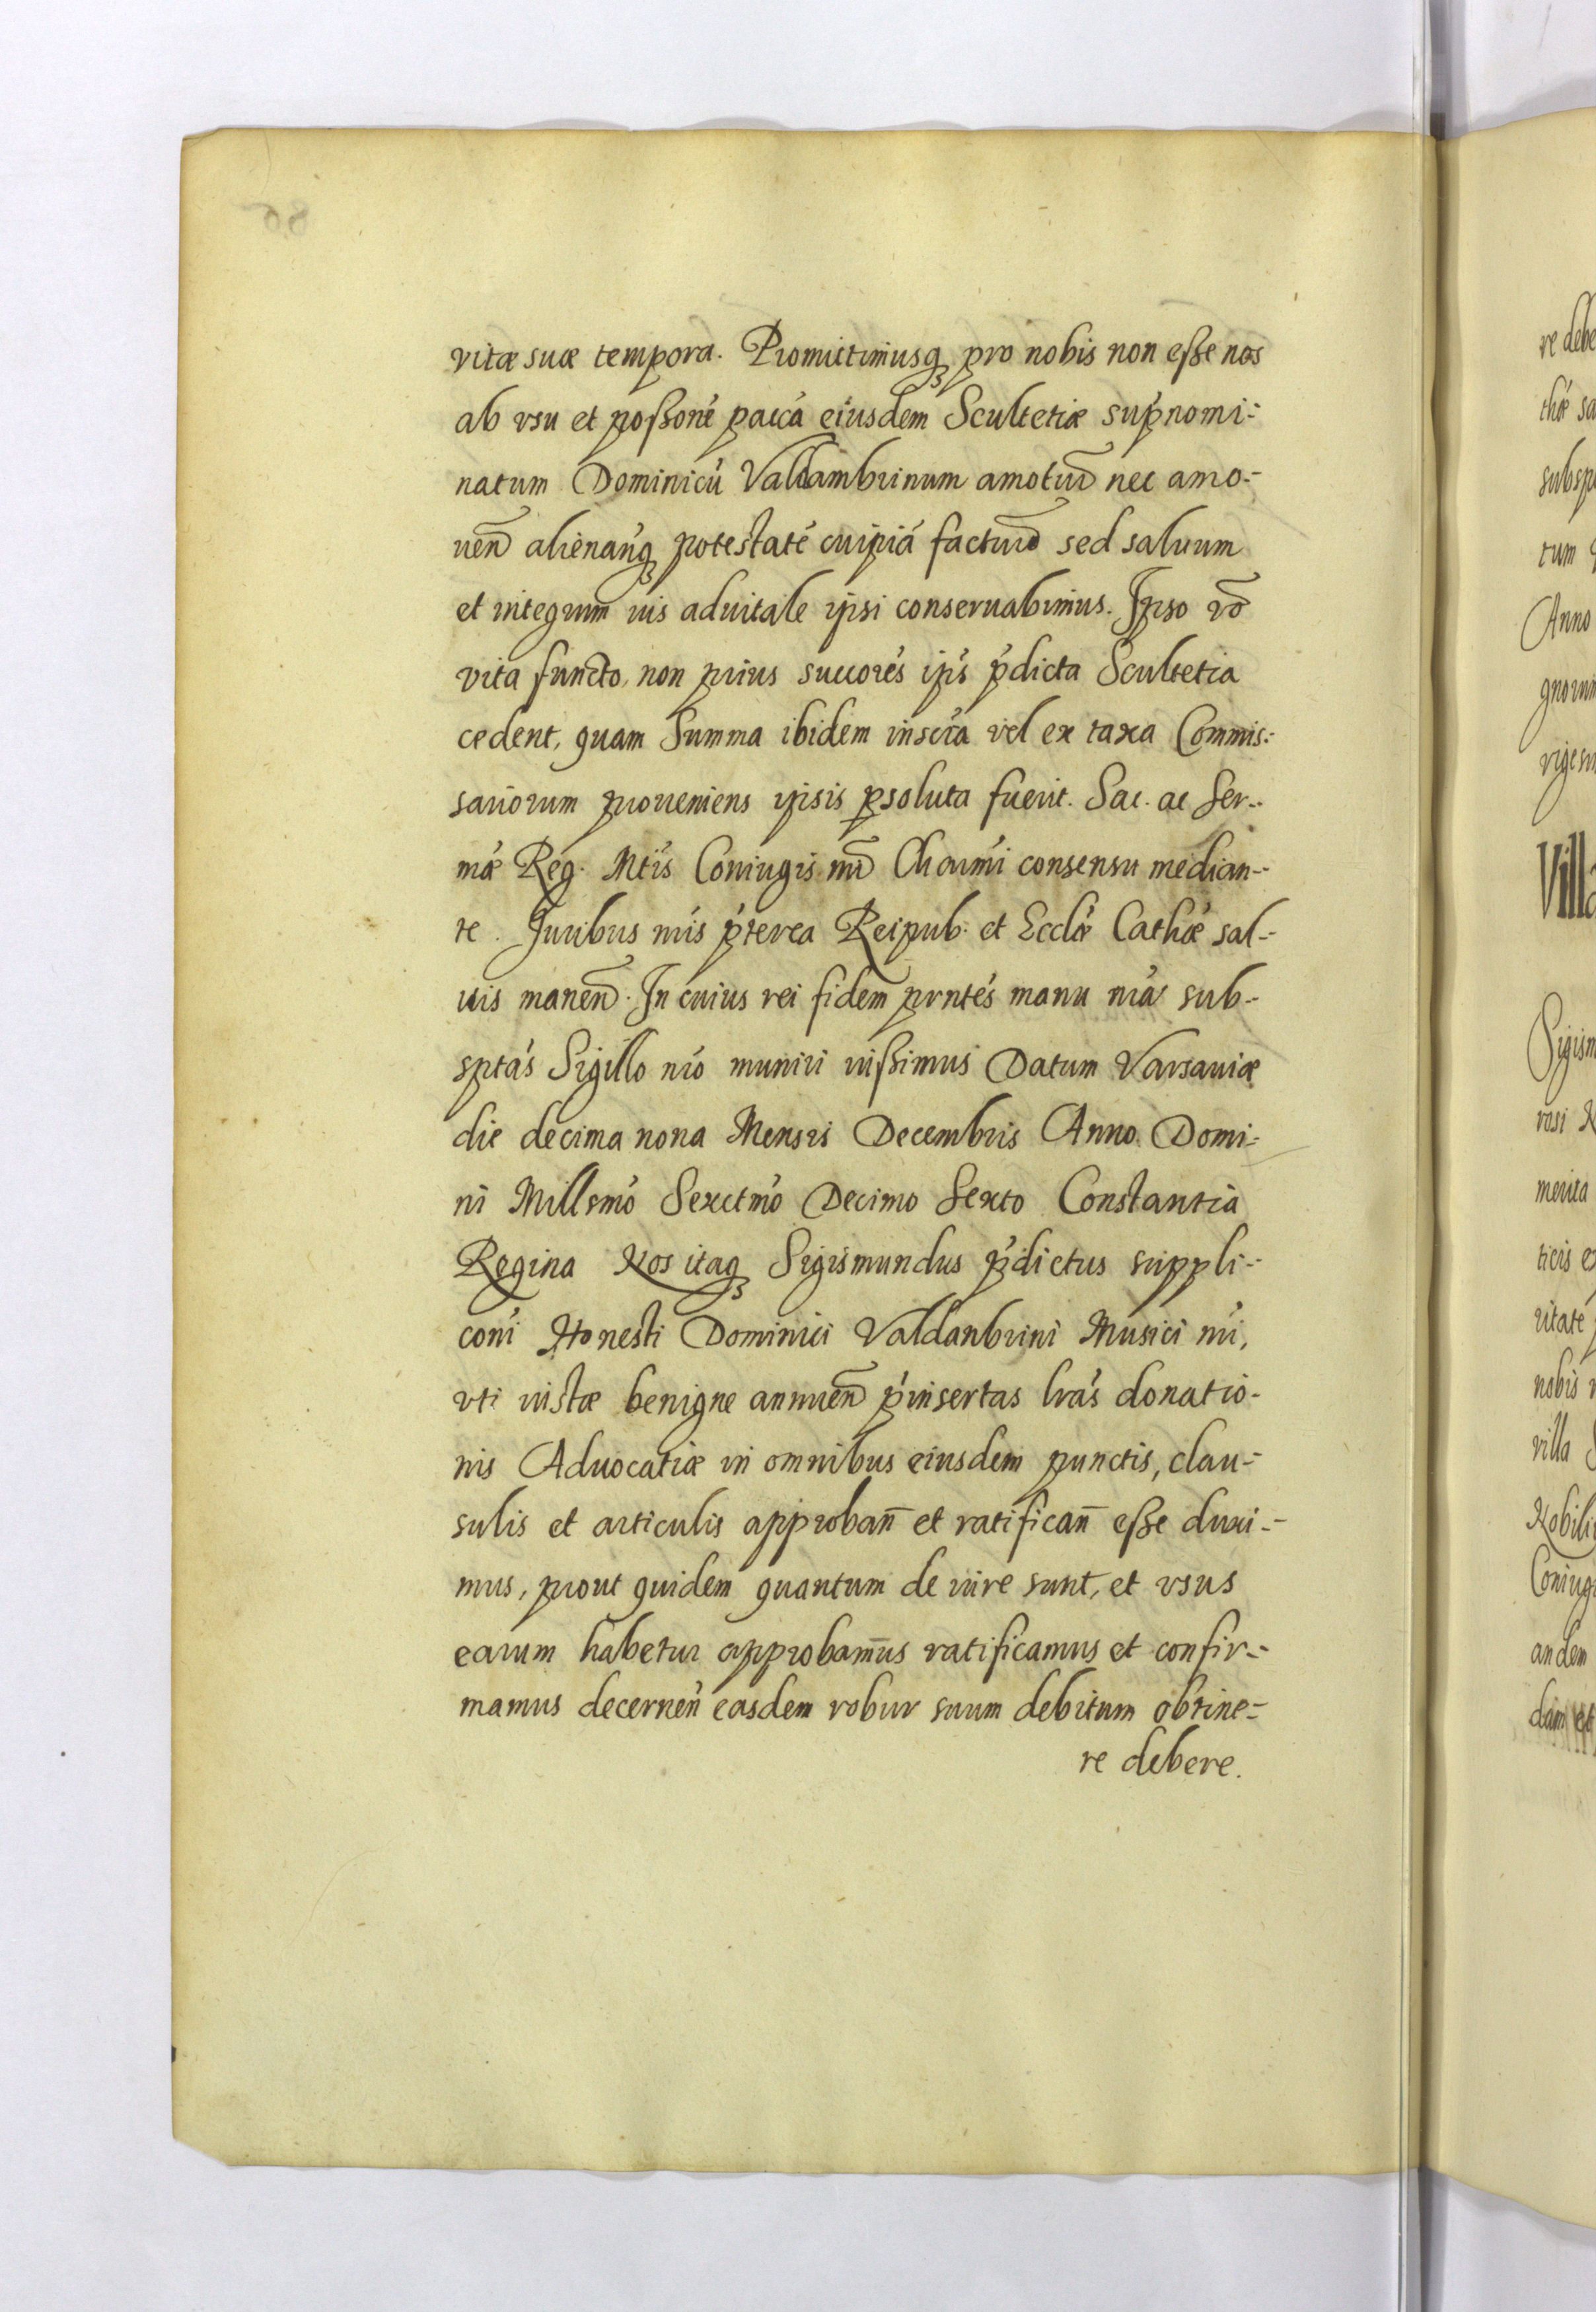 vitæ suæ tempora. Promittimusq₃ pro nobis non eße nos
ab vsu et poßoné paccá eiusdem Scultetiæ supnomi-
natum Dominicú Valdambrinum amoturō nec amo-
uen̄ alienanq₃ potestaté cuipiá facturō sed saluum
et integrum ius aduitale ipsi conseruabimus. Ipso vō
vita functo, non prius succorés ips pdicta Scultetia
cedent, quam Summa ibidem inscra vel ex taxa Commis-
sariorum proueniens ipsis psoluta fuerit. Sac. ac Ser-
mæ Reg. Mtis Coniugis nr̄ı Charmi consensu median-
te. Juribus nris pterea Reipub: et Ecclæ Cathæ sal-
uis manen̄. In cuius rei fidem prntes manu nra sub-
sptas Sigillo nro muniri iußimus Datum Varsauiæ
die decima nona Mensis Decembris Anno Domi-
ni Millsmo Sexctmo Decimo Sexto Constantia
Regina Nos itaq₃ Sigismundus pdictus suppli-
coni Honesti Dominici Valdanbrini Musici nri,
vti iustæ benigne annuen̄ pinsertas lras donatio-
nis Aduocatiæ in omnibus eiusdem punctis, clau-
sulis et articulis approban̄ et ratifican̄ eße duxi-
mus, prout quidem quantum de iure sunt, et vsus
earum habetur approbamus ratificamus et confir-
mamus decernen easdem robur suum debitum obtine-
re debere.